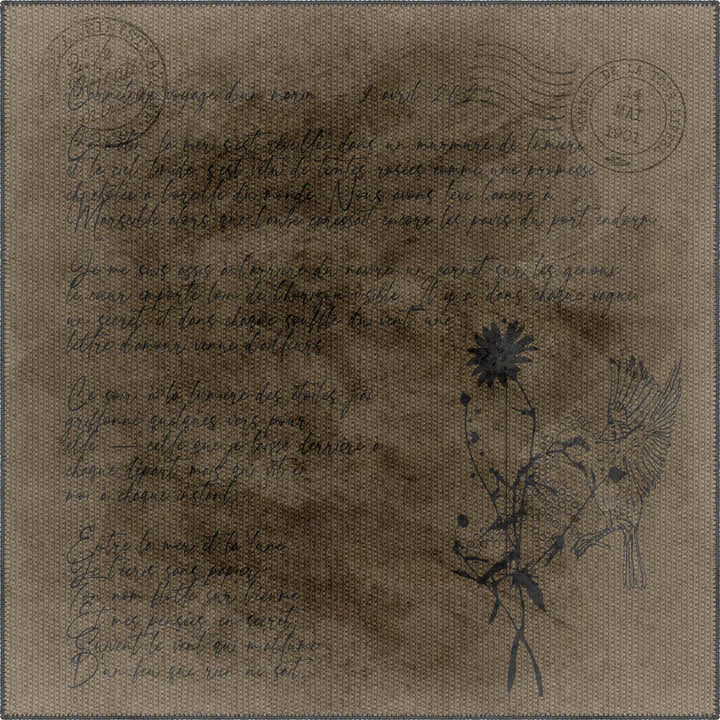 Carnet de voyage d'un marin — 1 avril 2025
Ce matin, la mer s'est réveillée dans un murmure de lumière,
et le ciel timide s'est vêtu de teintes rosées comme une promesse
chuchotée à l'oreille du monde. Nous avons levé l'ancre à
Marseille alors que l'aube caressait encore les pavés du port endormi.
Je me suis assis à l'arrière du navire, un carnet sur les genoux,
le cœur emporté loin de l'horizon visible. Il y a dans chaque vague
un secret, et dans chaque souffle du vent une
lettre d'amour venue d'ailleurs.
Ce soir, à la lumière des étoiles, j'ai
griffonné quelques vers pour
elle — celle que je laisse derrière à
chaque départ, mais qui vit en
moi à chaque instant.
Entre la mer et la lune
Je t'écris sans papier,
Ton nom flotte sur l'écume
Et mes pensées, en secret,
Suivent le vent qui m'allume
D'un feu que rien ne sait.
DE LA
14
MAI
1901